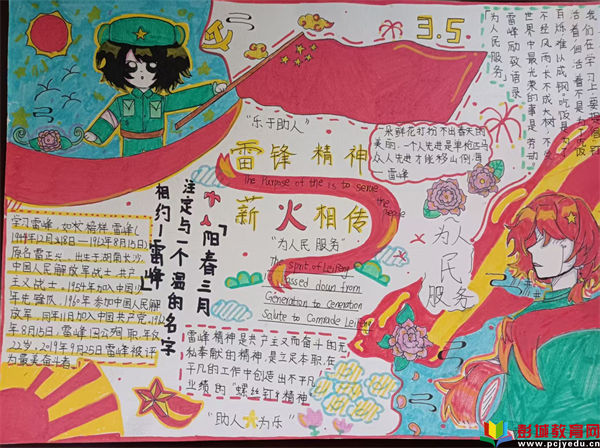 3.5
"乐于助人"
雷锋精神
The purpose of the is to serve
the people
薪火相传
"为人民服务"
The spirit of Lei Feng
passed down from
Generation to Generation
Salute to Comrade Lei Feng
一朵鲜花打扮不出春天的
美丽，一个人先进是单枪匹马
众人先进才能移山倒海
—雷峰
我们在学习上，要
世界中最光荣的事是劳动
雷峰励致语录
为人民服务」
为人
民
服务
「阳春三月
注定与一个温的名字
相约—雷峰」
学习雷峰，如好榜样雷峰（
1940年12月18日—1962年8月15日）
原名雷正兴，出生于湖南长沙，
中国人民解放军战士，共产
主义战士，1954年加入中国少
年先锋队，1960年参加中国人民解
放军，同年11月加入中国共产党，1962
年8月15日，雷峰因公殉职，年仅
22岁，2019年9月25日雷峰被评
为最美奋斗者
雷峰精神是共产主义而奋斗的无
私奉献的精神，是立足本职，在
平凡的工作中创造出不平凡
业绩的"螺丝钉"精神"
"助人为乐"
彭城教育网
www.pcjyedu.cn